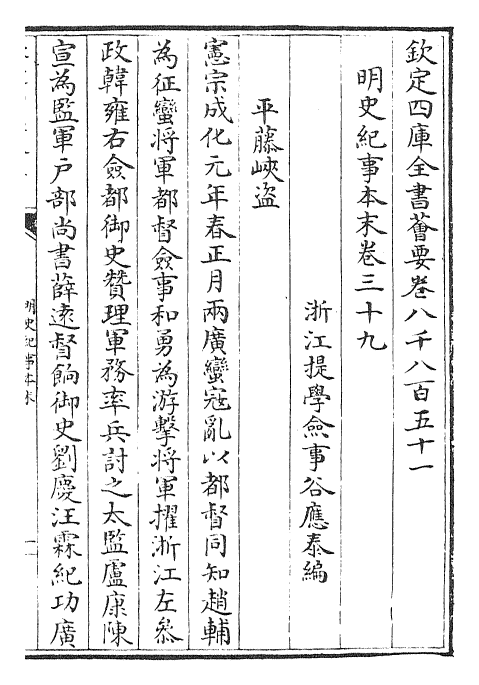 欽定四庫全書薈要卷八千八百五十一
明史紀事本末卷三十九
浙江提學僉事谷應泰編
平藤峽盜
憲宗成化元年春正月兩廣蠻冦亂以都督同知趙輔
為征蠻將軍都督僉事和勇為游擊將軍擢浙江左叅
政韓雍右僉都御史贊理軍務率兵討之太監盧康陳
宣為監軍户部尚書薛遠督餉御史劉慶汪霖紀功廣
明史紀事本末